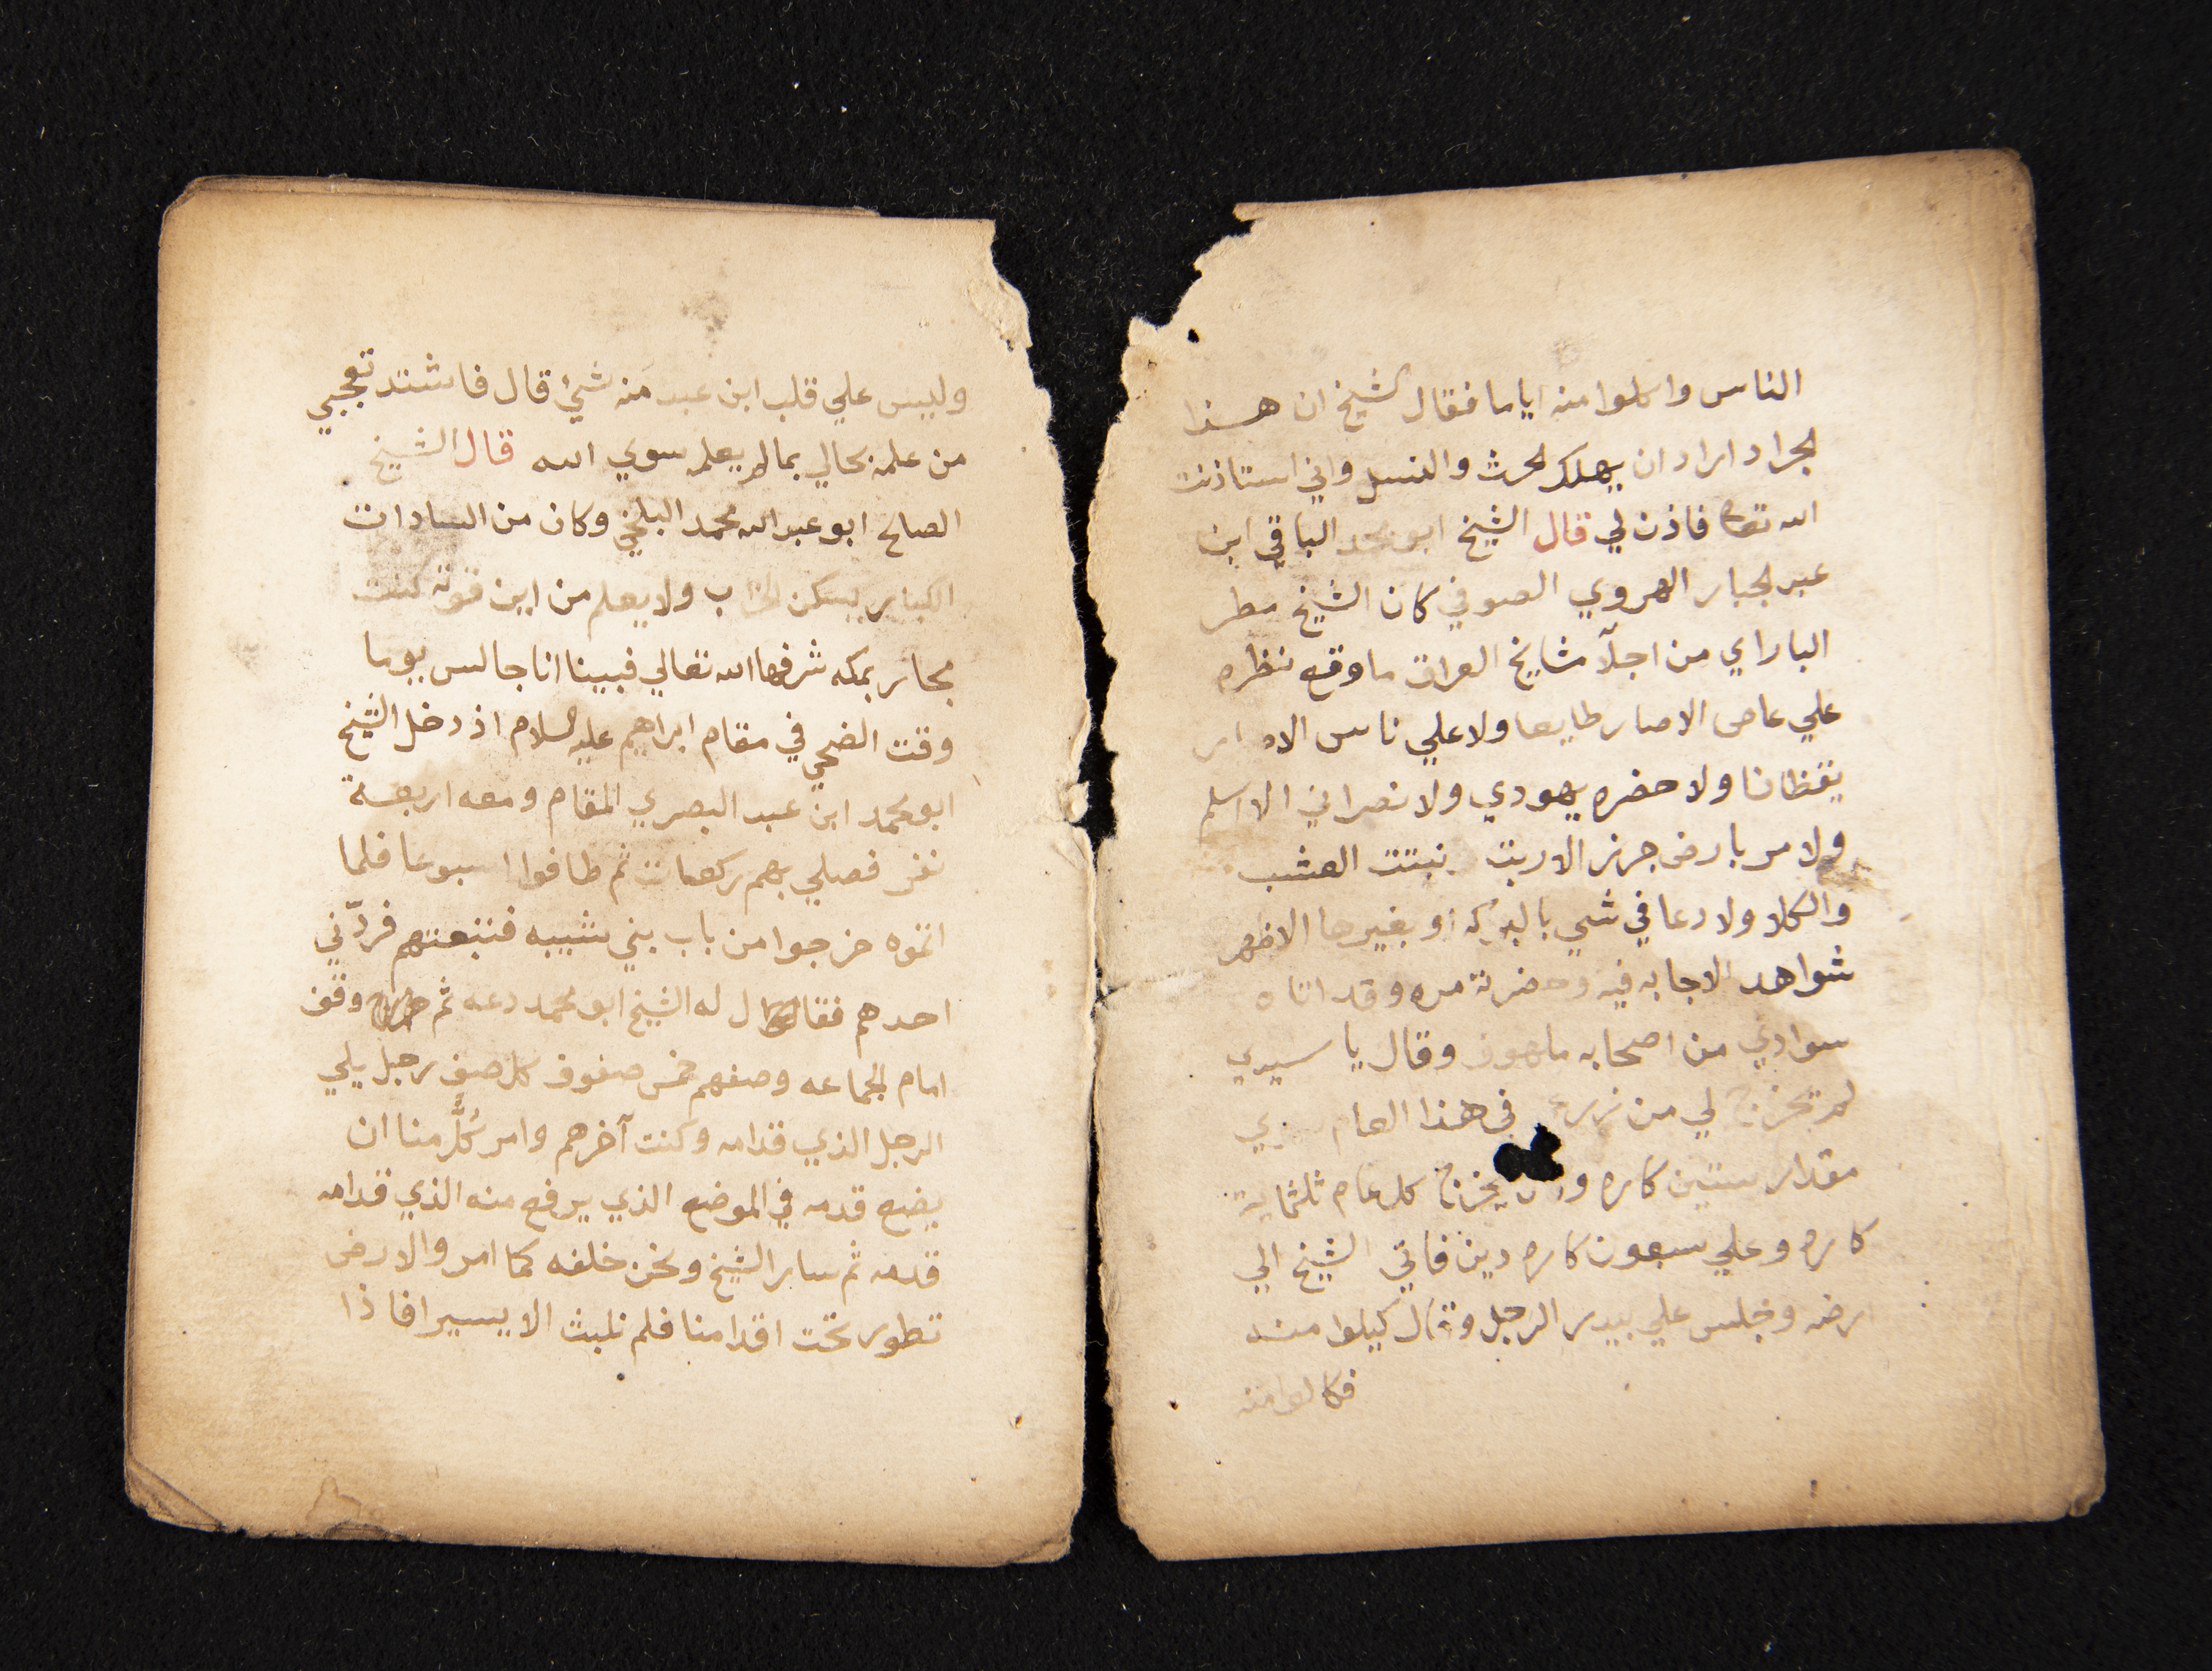 الناس واكلوا منه اياما فقال الشيخ ان هذا
الجراد اراد ان يهلك الحرث والنسل واني استاذنت
الله تعالى فاذن لي قال الشيخ ابو محمد الباقي ابن
عبد الجبار الهروي الصوفي كان الشيخ مطر
الباراي من اجلآ مشايخ العراق ما وقع نظره
علي عاص الا صار طايعا ولا علي ناس الا
يقظانا ولا حضره يهودي ولا نصراني الا اسلم
ولا مر بارض جرز الا نبتت العشب
والكلا ولا دعا في شي بالبركه او بغيرها الا ظهر
شواهد الاجابه فيه وحضرته مره وقد اتاه
سوادي من اصحابه ملهوف وقال يا سيدي
لم تخرج لي من زرع في هذا العام
مقدار ستين كاره يخرج كل عام ثلثمايه
كاره وعلي سبعون كاره دين فاتي الشيخ الي
ارضه وجلس علي بيدر الرجل وقال كيلوا منه
فكالوا منه
وليس علي قلب ابن عبد منه شئ قال فاشتد تعجبي
من علمه بحالي بما لم يعلم سوي الله قال الشيخ
الصالح ابو عبد الله محمد البلخي وكان من السادات
الكبار يسكن ولا يعلم من اين قوته كنت
مجاور بمكه شرفها الله تعالي فبينا انا جالس يوما
وقت الضحي في مقام ابراهيم عليه السلام اذ دخل الشيخ
ابو محمد ابن عبد البصري المقام ومعه اربعة
نفر فصلي بهم ركعات ثم طافوا اسبوعا فلما
اتموه خرجوا من باب بني شيبه فتبعتهم فردّني
احدهم فقال له الشيخ ابو محمد دعه ثم وقف
امام الجماعه وصفهم خمس صفوف كل صف رجل يلي
الرجل الذي قدامه وكنت آخرهم وامر كُلًّ منا ان
يضع قدمه في الموضع الذي يرفع منه الذي قدامه
قدمه ثم سار الشيخ ونحن خلفه كما امر والارض
تطوي تحت اقدامنا فلم نلبث الا يسيرا فاذا